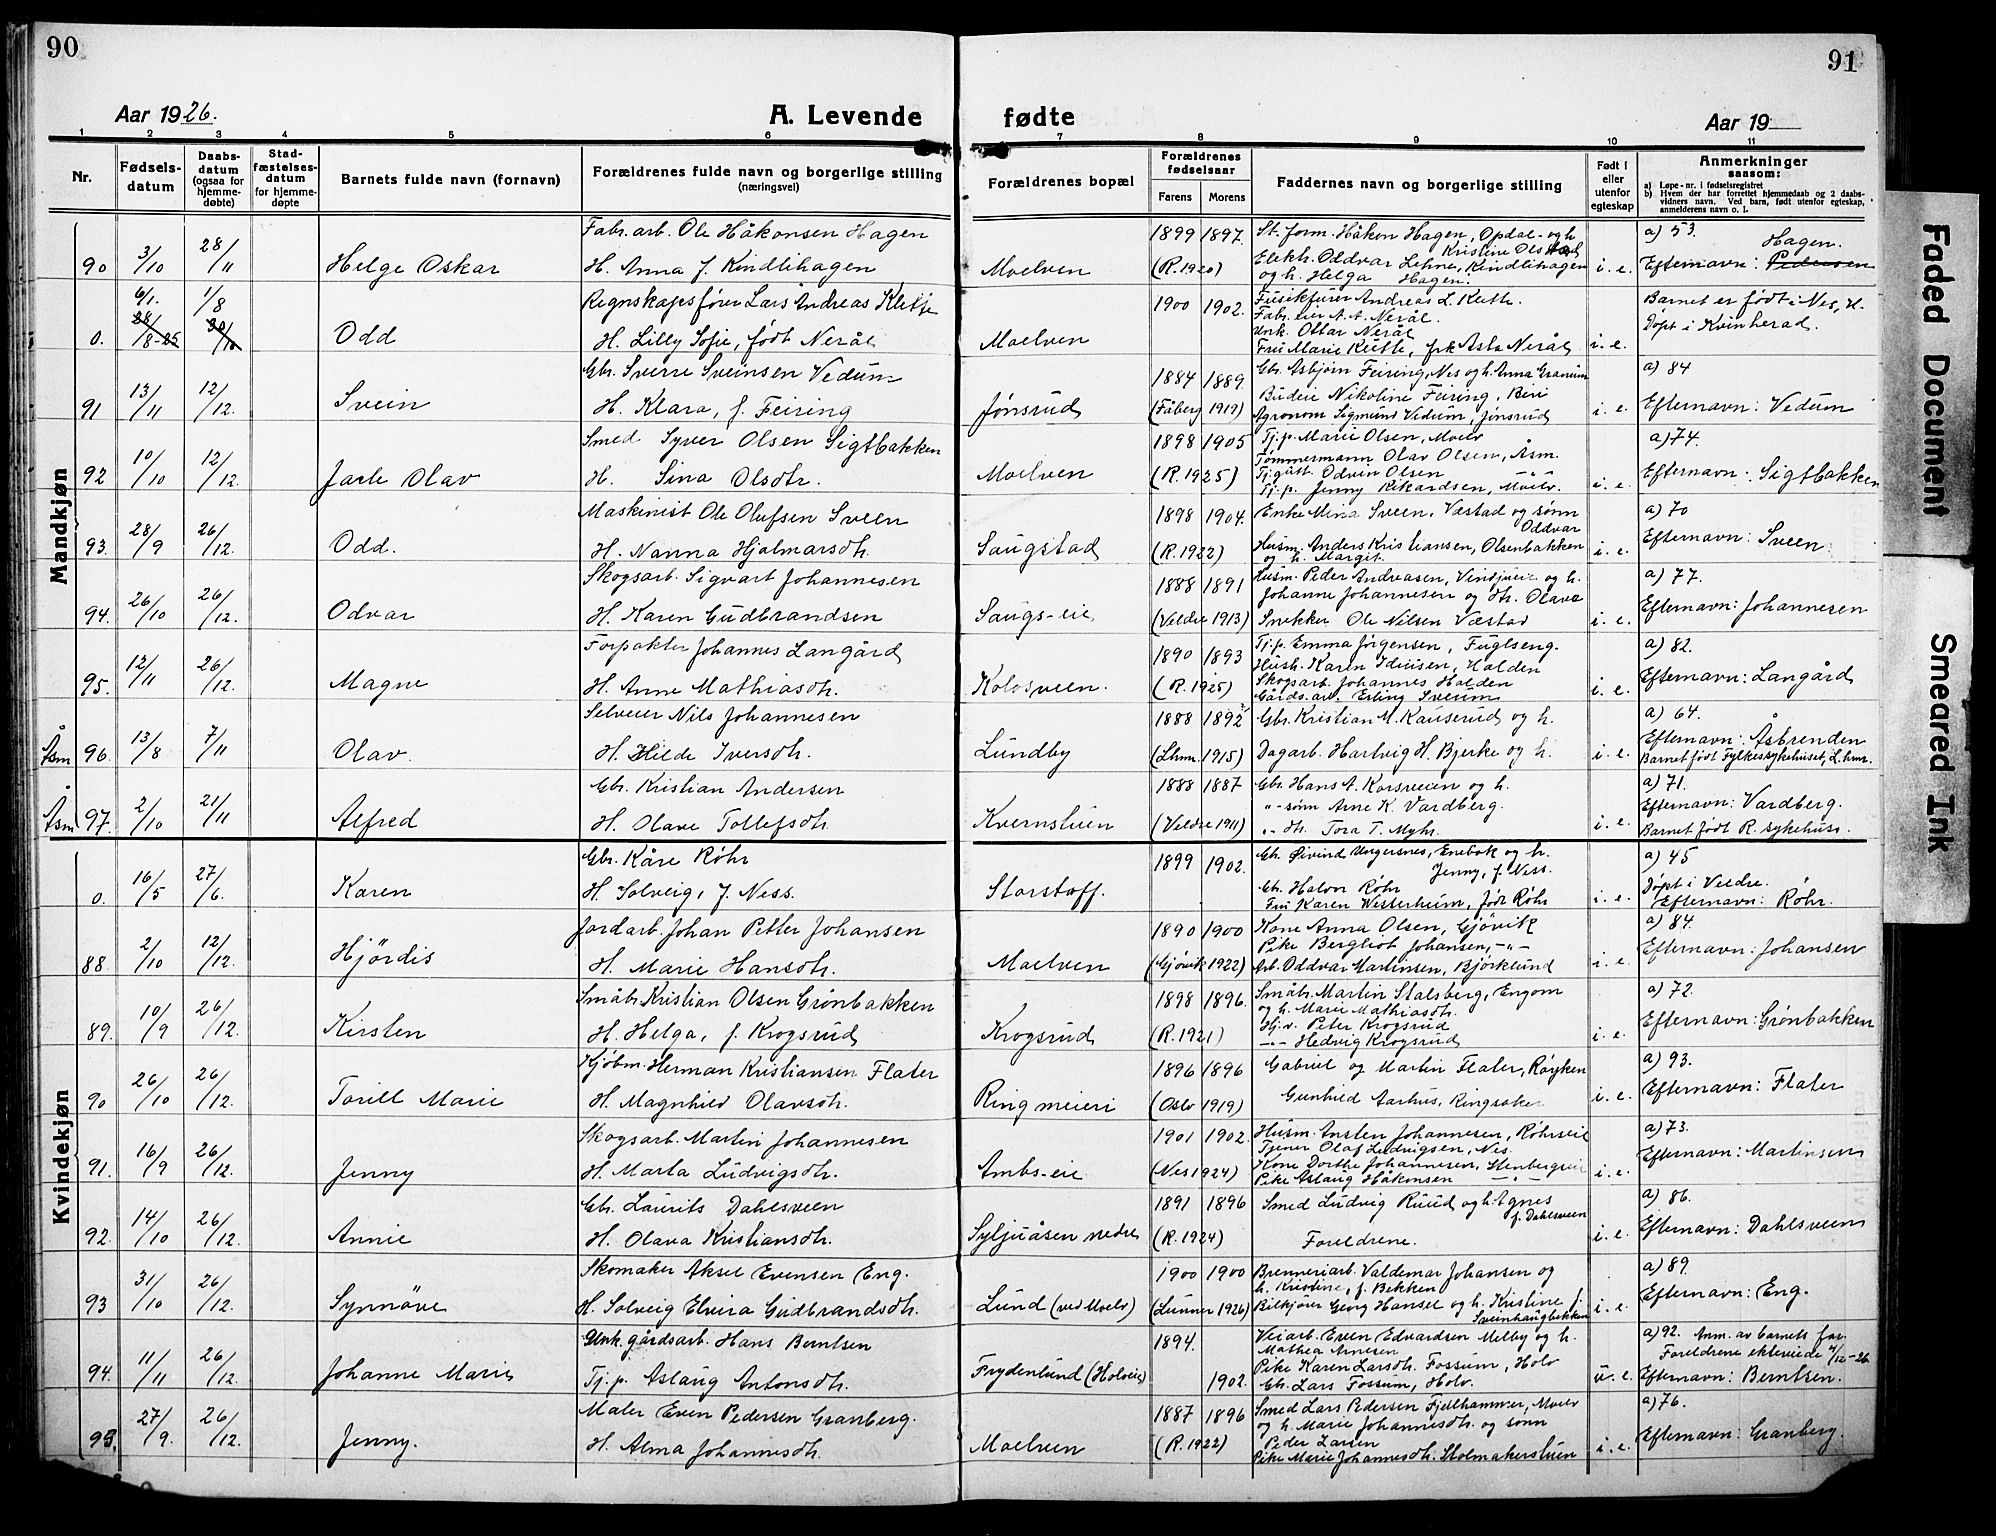 90
Aar 1926.
A. Levende
1 2 3 4 5 6
Nr.
Fødsels-
datum
Daabs-
datum
(ogsaa for
hjemme-
døbte)
Stad-
fæstelses-
datum
for hjemme-
døpte
Barnets fulde navn (fornavn)
Forældrenes fulde navn og borgerlige stilling
(næringsvei)
Mandkjøn
Fabr. arb. Ole Håkonsen Hagen
90 3/10 28/11 Helge Oskar H. Anna f. Kindlihagen
Regnskapsfører Lars Andreas
0. 6/1. 28/8-25 1/8 Odd H. Lilly Sofie, født Nerål
Gbr. Sverre Sveinsen Vedum
91 13/11 12/12. Svein H. Klara, f. Feiring
Smed Syver Olsen Sigtbakken
92 10/10 12/12. Jarle Olav H. Sina Olsdtr.
Maskinist Ole Olufsen Sveen
93. 28/9 26/12. Odd. H. Nanna Hjalmarsdtr.
Skogsarb. Sigvart Johannesen
94. 26/10 26/12. Odvar H. Karen Gudbrandsen
Forpakter Johannes Langård
95. 12/11 26/12. Magne H. Anne Mathiasdtr.
Selveier Nils Johannesen
Åsm 96. 13/8 7/11 Olav. H. Hilde Iversdtr.
Gbr. Kristian Andersen
Åsm 97. 2/10 21/11 Alfred H. Olave Tollefsdtr.
Kvindekjøn
Gbr. Kåre Røhr
0. 16/5 27/6. Karen H. Solveig, f. Ness.
Jordarb. Johan Petter Johansen
88 2/10 12/12. Hjördis H. Marie Hansdtr.
Småbr. Kristian Olsen Grönbakken
89. 10/9 26/12. Kirsten H. Helga, f. Krogsrud
Kjöbm. Herman Kristiansen Flater
90 26/10 26/12. Torill Marie H. Magnhild Olavsdtr.
Skogsarb. Martin Johannesen
91. 16/9 26/12. Jenny H. Marta Ludvigsdtr.
Gbr. Laurits Dahlsveen
92. 14/10 26/12. Annie H. Olava Kristiansdtr.
Skomaker Aksel Evensen Eng.
93 31/10 26/12. Synnöve H. Solveig Elvira Gudbrandsdtr.
Unk. gårdsarb. Hans Berntsen
94. 11/11 26/12. Johanne Marie Tj. p. Aslaug Antonsdtr.
Maler Even Pedersen Granberg.
95. 27/9. 26/12. Jenny. H. Alma Johannesdtr.
91
fødte
Aar 19
7 8 9 10 11
Forældrenes bopæl
Forældrenes
fødselsaar
Farens Morens
Faddernes navn og borgerlige stilling
Født i
eller
utenfor
egteskap
Anmerkninger
saasom:
a) Løpe-nr. i fødselsregistret
b) Hvem der har forrettet hjemmedaab og 2 daabs-
vidners navn. Ved barn, født utenfor egteskap,
anmelderens navn o. l.
1899 1897. St. form. Håkon Hagen, Opdal og h. a) 53.
Kristine Olsdtr. Hagen.
Moelven (R. 1920) Elekt. Oddvar Lehne, Kindlihagen i. e. Efternavn: Pedersen
og h. Helga Hagen.
1900 1902. Andreas L. Barnet er født i Nes, H.
Fabr. eier A. A. Nerål. Döpt i Kvinherad.
Unk. Ottar Nerål
Moelven Fru Marie, frk Asta Nerål i. e.
1884 1889. Gbr. Asbjørn Feiring, Nes og h. Anna Granum a) 84
Budeie Nikoline Feiring, Biri
Jönsrud (Fåberg 1919) Agronom Sigmund Vedum, Jönsrud i. e. Efternavn: Vedum
1898 1905 Tj. p. Marie Olsen, Moelv a) 74.
Tömmermann Olav Olsen, Åsm.
Moelven (R. 1925) Tj. gutt Odvin Olsen -"- i. e. Efternavn: Sigtbakken
Tj. p. Jenny Rikardsen, Moelv.
1898 1904. Enke Mina Sveen, Væstad og sønn a) 70
Oddvar
Saugstad (R. 1922) Husm. Anders Kristiansen, Olsenbakken i. e. Efternavn: Sveen
og h. Margit.
1888 1891 Husm. Peder Andreasen, og h. a) 77.
Johanne Johannesen og dtr. Olave
Saugs-eie (Veldre 1913) Snekker Ole Nilsen Væstad i. e. Efternavn: Johannesen
1890 1893 Tj. p. Emma Jörgensen, Fuglseng. a) 82.
Hush. Karen, Holden
Kolosveen. (R. 1925) Skogsarb. Johannes Holden i. e. Efternavn: Langård
Gårds. arb. Erling Sveum
1888 1892 Gbr. Kristian M. Kauserud og h. a) 64.
Efternavn: Åsbrenden
Lundby (Lhmr. 1915) Dagarb. Hartvig H. Bjerke og h. i. e. Barnet født Fylkessykehuset, L.hmr.
1888 1887 Gbr. Hans A. Korsveien og h. a) 71.
"- sønn Arne K. Vardberg. Efternavn: Vardberg.
Kvernstuen (Veldre 1911) "- dtr. Tora T. Myhr. i. e. Barnet født R. sykehus.
1899 1902. Gbr. Øivind Ungersnes, Enebak og h. a) 45
Jenny, f. Ness. Döpt i Veldre.
Storstaff. Gbr. Halvor Röhr
Fru Karen Westerheim, född Röhr i. e. Efternavn: Röhr.
1890 1900 Kone Anna Olsen, Gjövik a) 84.
Pike Bergliot Johansen, -"-
Moelven (Gjövik 1922) Arb. Oddvar Martinsen, Björklund i. e. Efternavn: Johansen
1898 1896. Småbr. Martin Stalsberg, Engom a) 72.
og h. Marie Mathiasdtr.
Krogsrud (R. 1921) Hj. v. Peter Krogsrud i. e. Efternavn: Grönbakken
-"- Hedvig Krogsrud
1896 1896 Gabriel og Martin Flater, Röyken a) 93.
Ringmeieri (Oslo 1919) Gunhild Aarhus, Ringsaker i. e. Efternavn: Flater
1901 1902. Husm. Ansten Johannesen, Röhrseie a) 73.
Tjener Olaf Ludvigsen, Nes.
Ambs-eie (Nes 1924) Kone Dorthe Johannesen, Stenbergseie i. e. Efternavn: Martinsen
Pike Aslaug Håkensen -"-
1891 1896 Smed Ludvig Ruud og h. Agnes a) 86.
f. Dahlsveen
Syljuåsen nedre (R. 1924) Foreldrene. i. e. Efternavn: Dahlsveen
1900 1900 Brenneriarb. Valdemar Johansen og a) 89.
h. Kristine, f. Bekken
Lund (ved Moelv) (Lunner 1926) Bilkjörer Georg Hansel og h. Kristine f. i. e. Efternavn: Eng.
Sveinhaugbekken
1894. Veiarb. Even Edvardsen Melby og h. a) 92. Anm. av barnets far.
Mathea Arnesen Foreldrene ekteviede 4/12-26.
Frydenlund (Holveie) 1902. Pike Karen Larsdtr. Fossum, Holv u. e. Efternavn: Berntsen.
Gbr. Lars Fossum, Holv.
1887 1896 Smed Lars Pedersen Fjellhammer, Moelv a) 76.
og h. Marie Johannesdtr. og sønn
Moelven (R. 1922) Peder Larsen i. e. Efternavn: Granberg.
Pike Marie Johannesdtr. Stolmakerstuen
Faded Document
Smeared Ink